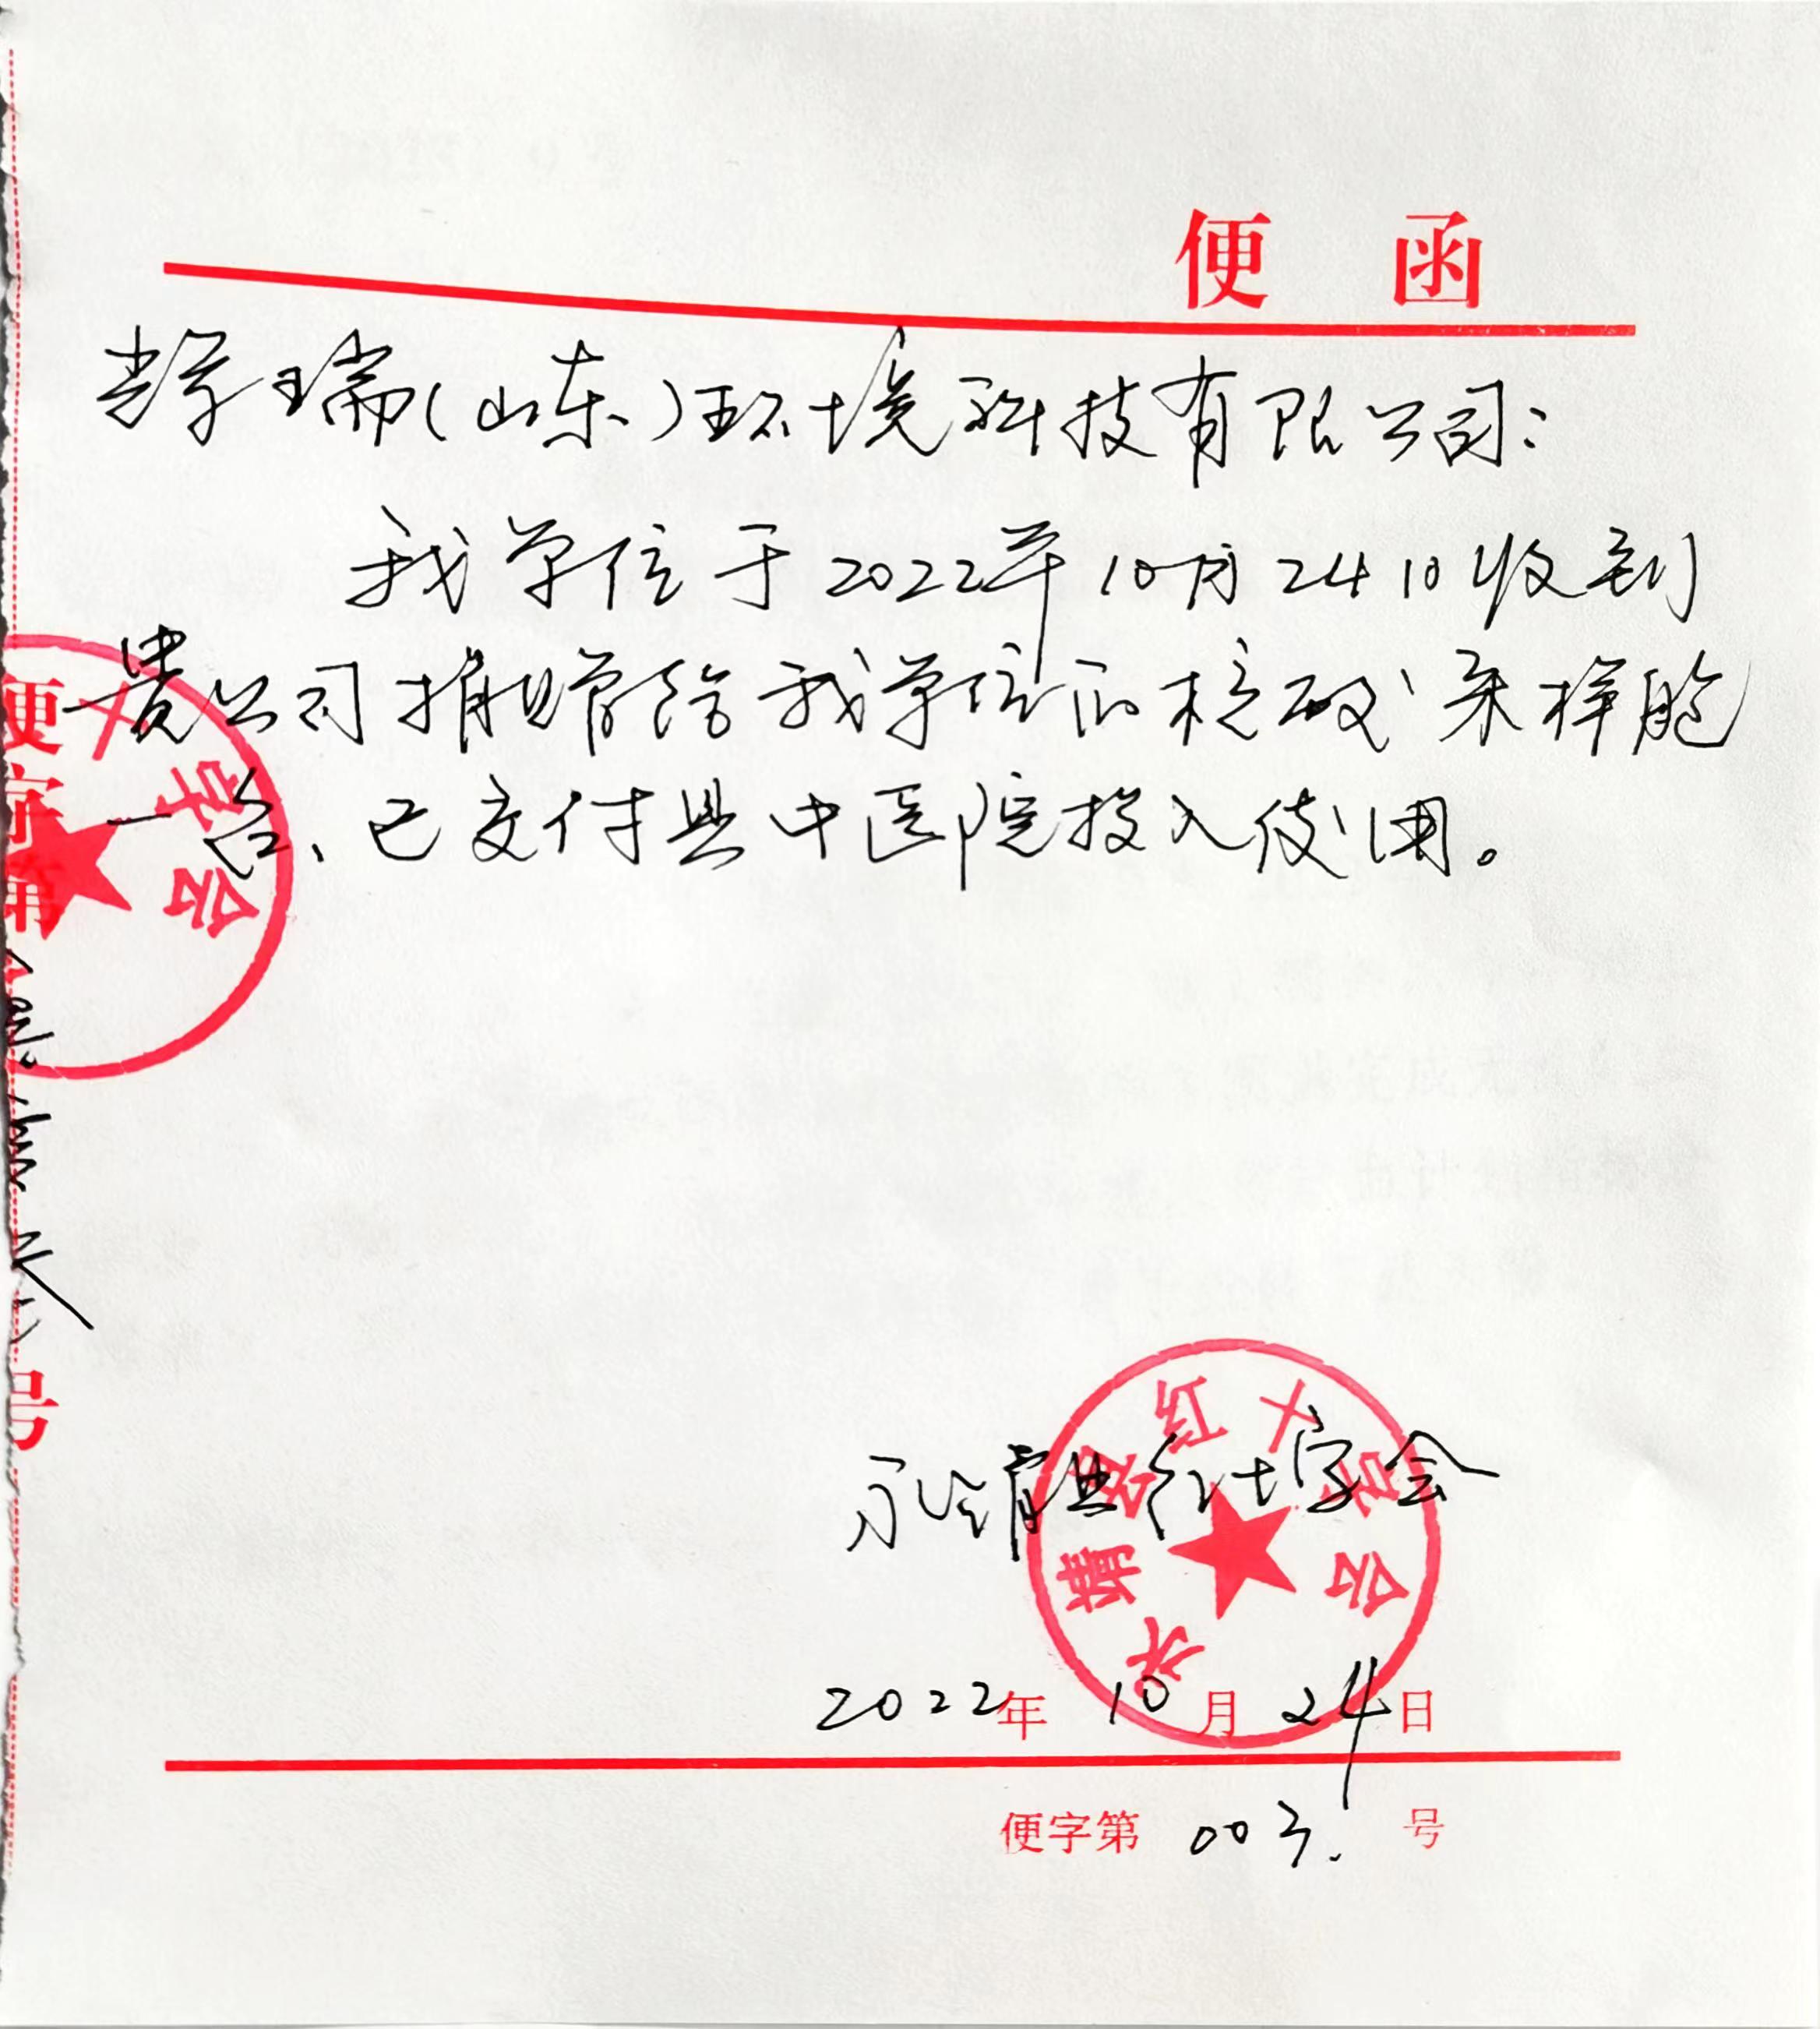 便 函
瑞(山东)环境科技有限公司:
我单位于2022年10月24日收到
贵公司捐赠给我单位的核酸采样舱
一台、已交付县中医院投入使用。
便字第
号
十字会
永靖县红十字会
永靖县红十字会
2022年 10月 24日
便字第 003. 号